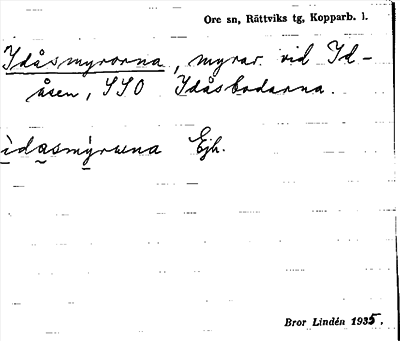 Ore sn, Rättviks tg, Kopparb. l.
Idåsmyrorna, myrar vid Id-
åsen, SSO Idåsbodarna.
ìdasmỳrwna Ejh.
Bror Lindén 1935.